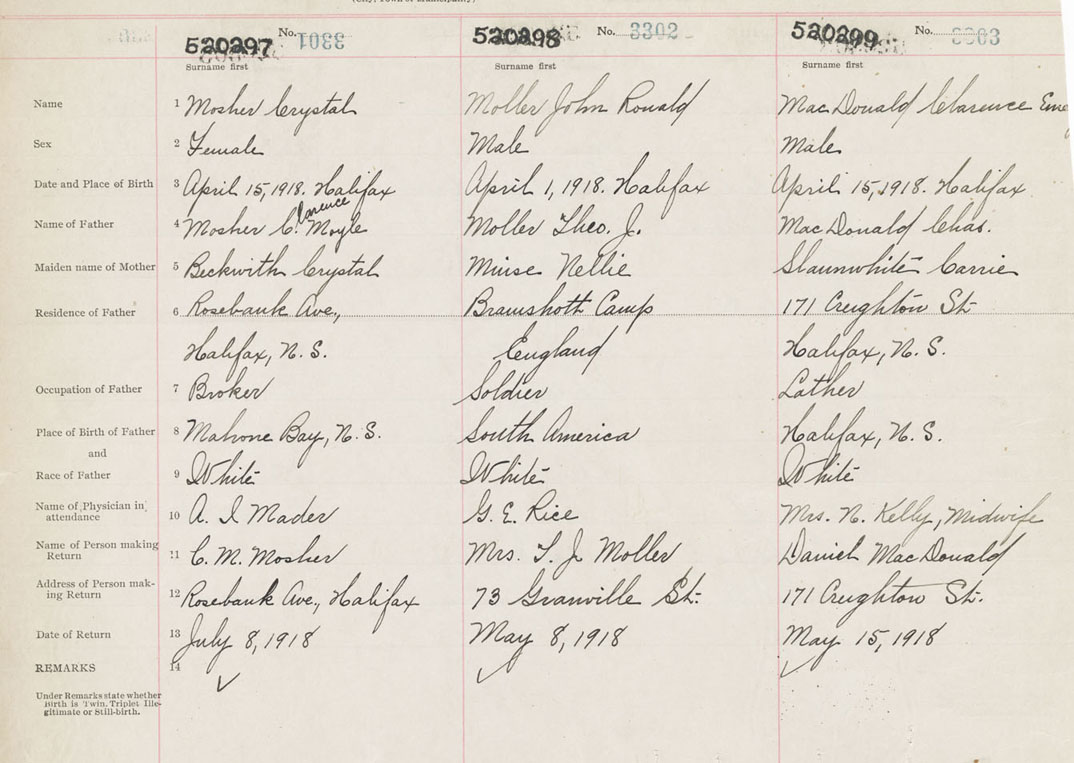 (City, Town or Municipality)
520297 No. 3301 520298 No. 3302 520299 No. 3303
Surname first Surname first Surname first
Name 1 Mosher Crystal Moller John Ronald MacDonald Clarence
Sex 2 Female Male Male
Date and Place of Birth 3 April 15, 1918. Halifax April 1, 1918. Halifax April 15, 1918. Halifax
Name of Father 4 Mosher Clarence Moyle Moller Theo. J. MacDonald Chas.
Maiden name of Mother 5 Beckwith Crystal Nellie Slaunwhite Carrie
Residence of Father 6 Rosebank Ave., Bramshott Camp 171 Creighton St
Halifax, N. S. England Halifax, N. S.
Occupation of Father 7 Broker Soldier Lather
Place of Birth of Father 8 Mahone Bay, N. S. South America Halifax, N. S.
and
Race of Father 9 White White White
Name of Physician in attendance 10 A. I Mader G. E. Rice Mrs. N. Kelly, Midwife
Name of Person making Return 11 C. M. Mosher Mrs. T. J. Moller Daniel MacDonald
Address of Person making Return 12 Rosebank Ave., Halifax 73 Granville St. 171 Creighton St.
Date of Return 13 July 8, 1918 May 8, 1918 May 15, 1918
REMARKS 14
Under Remarks state whether
Birth is Twin, Triplet Ille-
gitimate or Still-birth.